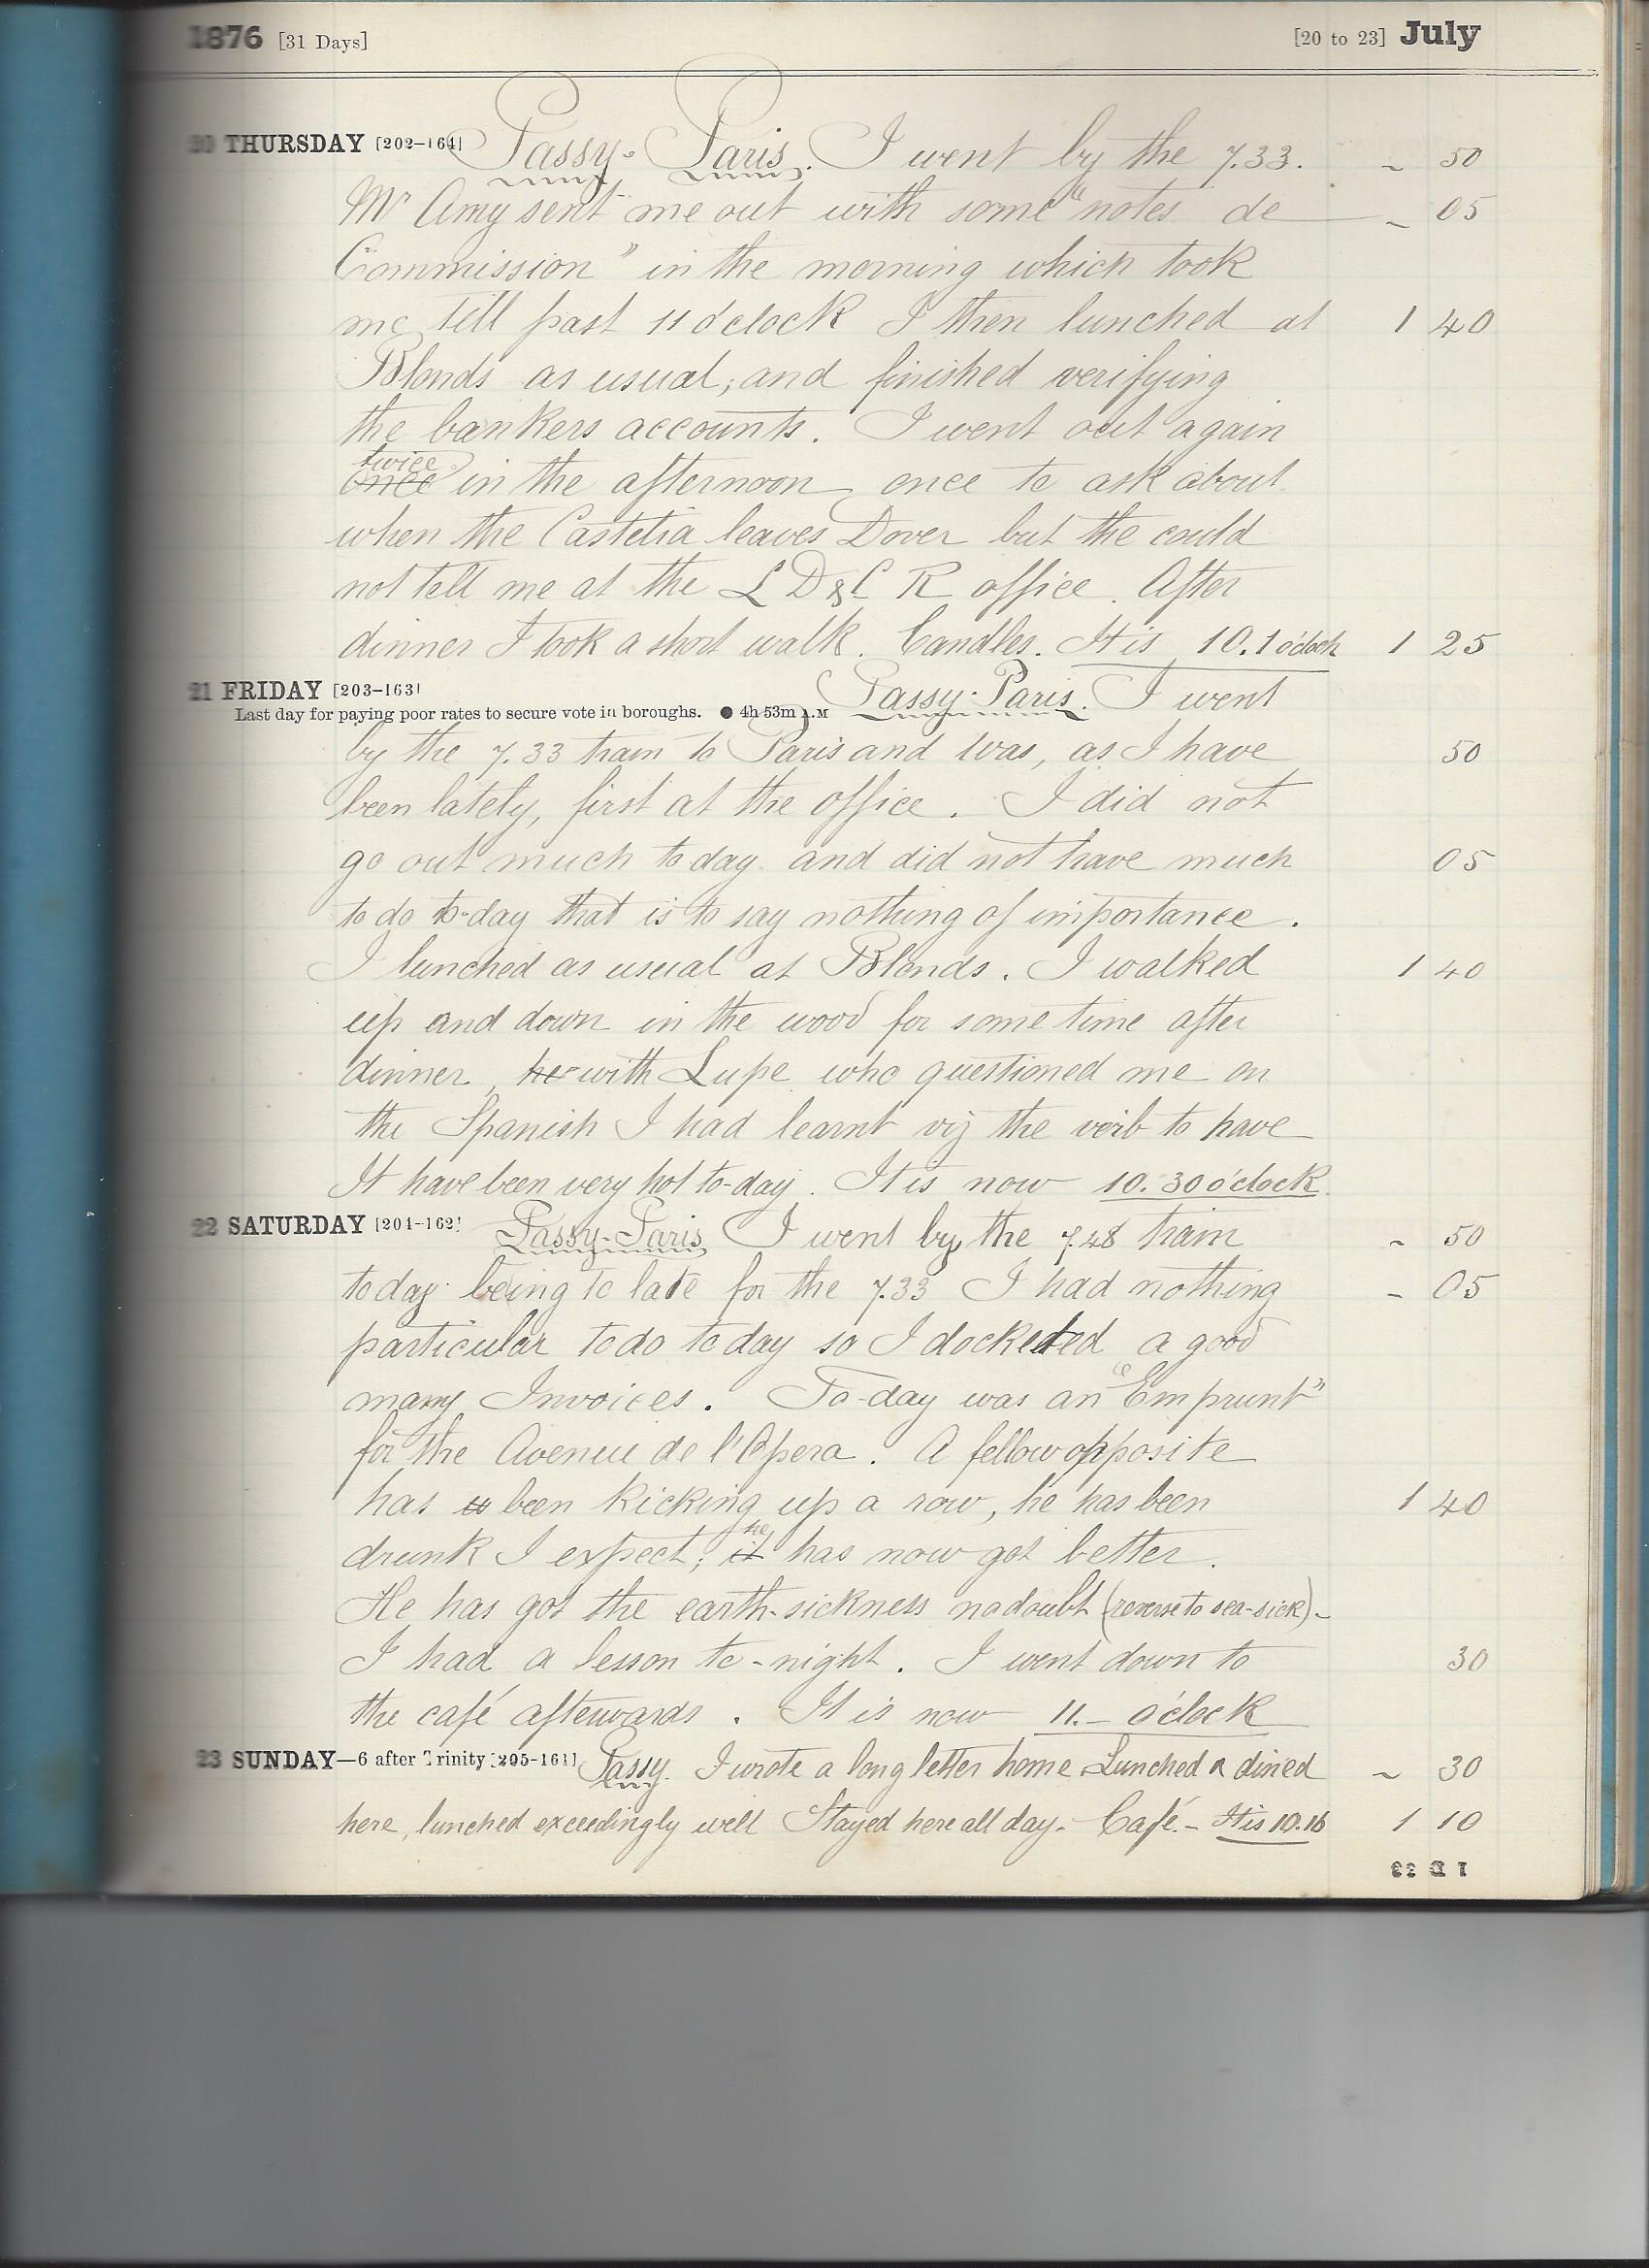 1876 [31 Days] [20 to 23] July
20 THURSDAY [202-164] Passy-Paris. I went by the 7.33. - 50
Mr Amy sent me out with some "notes de - 05
Commission" in the morning which took
me till past 11 o'clock I then lunched at 1 40
Blonds as usual, and finished verifying
the bankers accounts. I went out again
twice
once in the afternoon once to ask about
when the Castelia leaves Dover but the could
not tell me at the L D & C R office. After
dinner I took a short walk. Candles. It is 10.1 o'clock 1 25
21 FRIDAY [203-163] Passy-Paris. I went
Last day for paying poor rates to secure vote in boroughs. ● 4h 53m A.M
by the 7.33 train to Paris and was, as I have 50
been lately, first at the office. I did not
go out much to day and did not have much 05
to do to-day that is to say nothing of importance.
I lunched as usual at Blonds. I walked 1 40
up and down in the wood for some time after
dinner, her with Lupe who questioned me on
the Spanish I had learnt viz the verb to have
It have been very hot to-day. It is now 10.30 o'clock
22 SATURDAY [204-162] Passy-Paris I went by the 7.48 train - 50
today being to late for the 7.33 I had nothing - 05
particular to do to day so I docketed a good
many Invoices. To-day was an "Emprunt"
for the Avenue de l'Opera. A fellow opposite
has been kicking up a row, he has been 1 40
he
drunk I expect; it has now got better.
He has got the earth-sickness no doubt (reverse to sea-sick) -
I had a lesson to-night. I went down to 30
the café afterwards. It is now 11.- o'clock
23 SUNDAY—6 after Trinity [205-161] Passy. I wrote a long letter home. Lunched & dined - 30
here, lunched exceedingly well Stayed here all day. Café. - It is 10.16 1 10